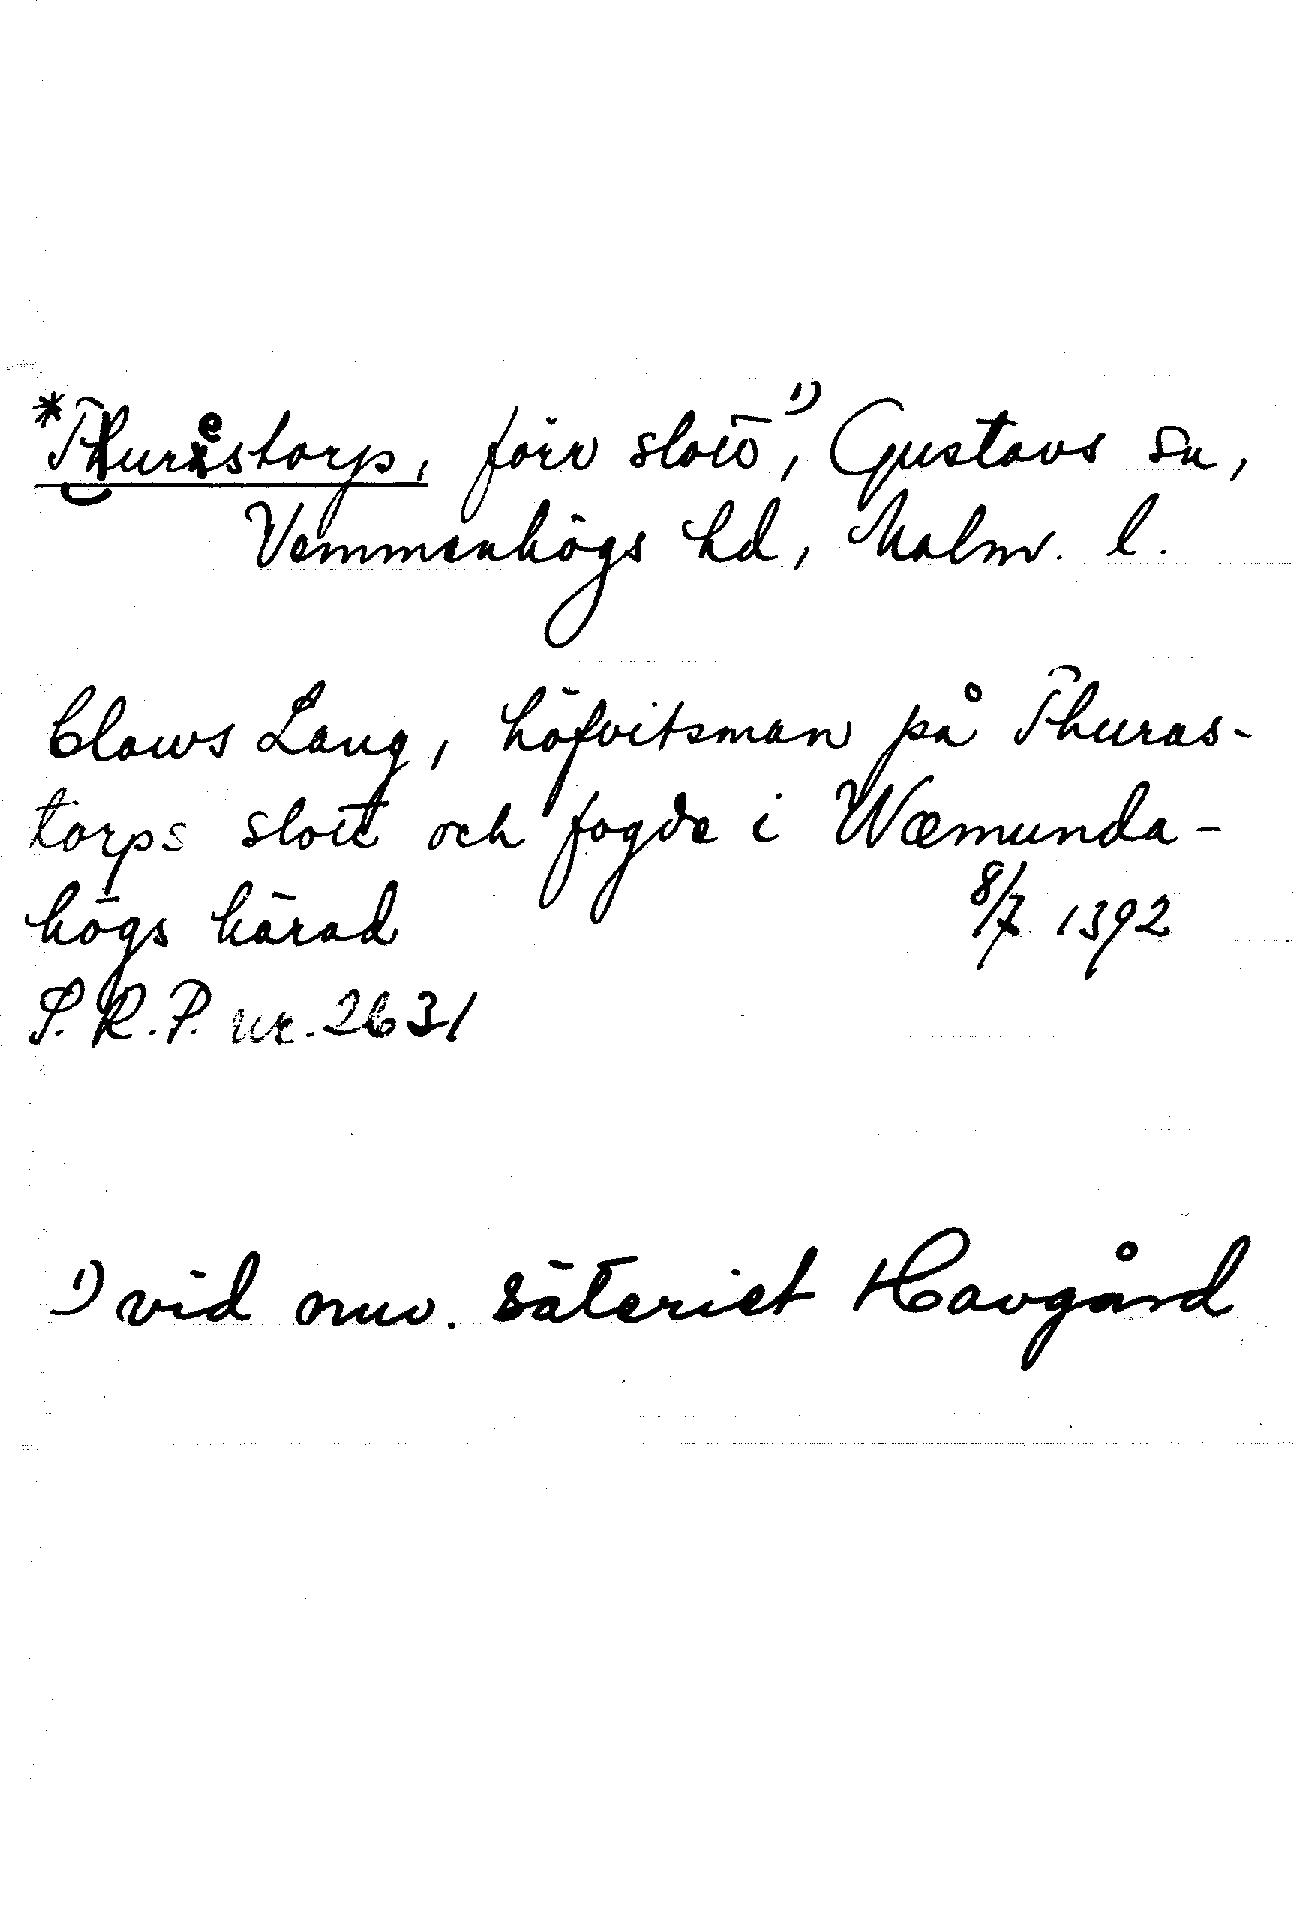 *Turestorp, förr slott¹⁾, Gustavs sn,
Vemmenhögs hd, Malm. l.
Claws Lang, höfvitsman på Thuras-
torps slott och fogde i Wæmunda-
högs härad 8/7 1392
S.R.P. nr. 2631
¹⁾ vid nuv. säteriet Havgård